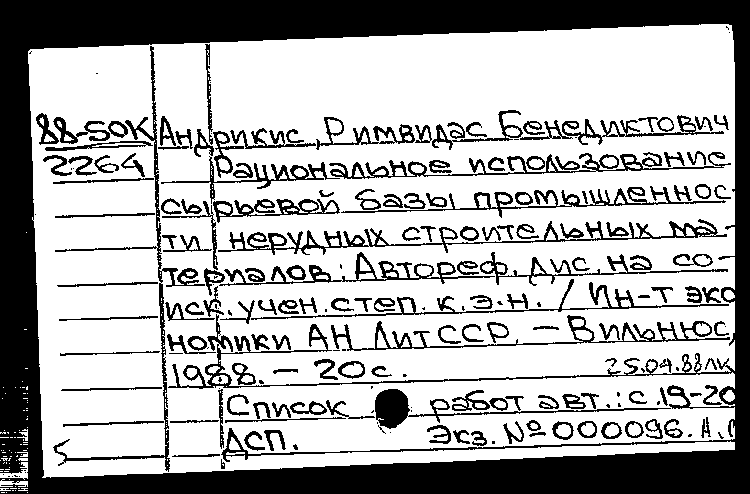 88-50К Андрикис, Римвидас Бенедиктович
2264 Рациональное использование
сырьевой базы промышленнос-
ти нерудных строительных ма-
териалов: Автореф. дис. на со-
иск. учен. степ. к.э.н. / Ин-т эко
номики АН ЛитССР. – Вильнюс,
1988. – 20 с. 25.04.88лк
Список работ авт.: с. 19-20
ДСП. Экз. № 000096. А.
5